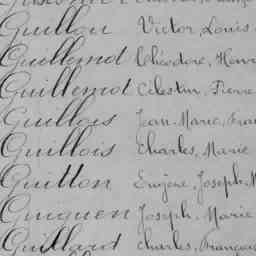 Guillou Victor, Louis
Guillemot Théodore, Henri
Guillemot Célestin, Pierre
Guillois Jean Marie, Fran
Guillois Charles, Marie
Guitton Eugène, Joseph, M
Guiguen Joseph, Marie
Guillard Charles, François